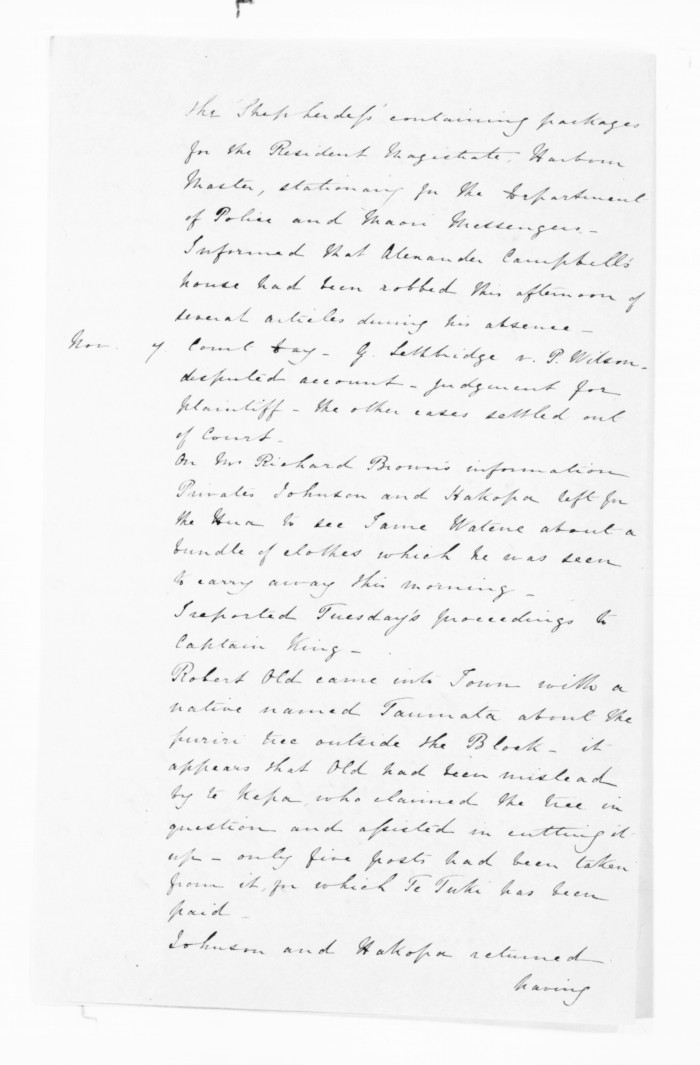 the "Shepherdess" containing packages
for the Resident Magistrate, Harbour
Master, stationary for the Department
of Police and Maori Messengers -
Informed that Alexander Campbell's
house had been robbed this afternoon of
several articles during his absence -
Nov. 7 Court Day - G. Lethbridge v. P. Wilson -
disputed account - judgment for
Plaintiff - the other cases settled out
of Court -
On Mr Richard Brown's information
Privates Johnson and Hakopa left for
the Hua to see Tame Watene about a
bundle of clothes which he was seen
to carry away this morning -
I reported Tuesday's proceedings to
Captain King -
Robert Old came into Town with a
native named Taumata about the
puriri tree outside the Block - it
appears that Old had been mislead
by te Kepa, who claimed the tree in
question and assisted in cutting it
up - only five posts had been taken
from it, for which Te Tuki has been
paid -
Johnson and Hakopa returned
having